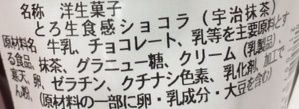 名称 洋生菓子
とろ生食感ショコラ(宇治抹茶)
原材料名 牛乳、チョコレート、乳等を主要原料とす
る食品、抹茶、グラニュー糖、クリーム(乳製品)
寒天、卵、ゼラチン、クチナシ色素、乳化剤、加工で
ん粉、(原材料の一部に卵・乳成分・大豆を含む)